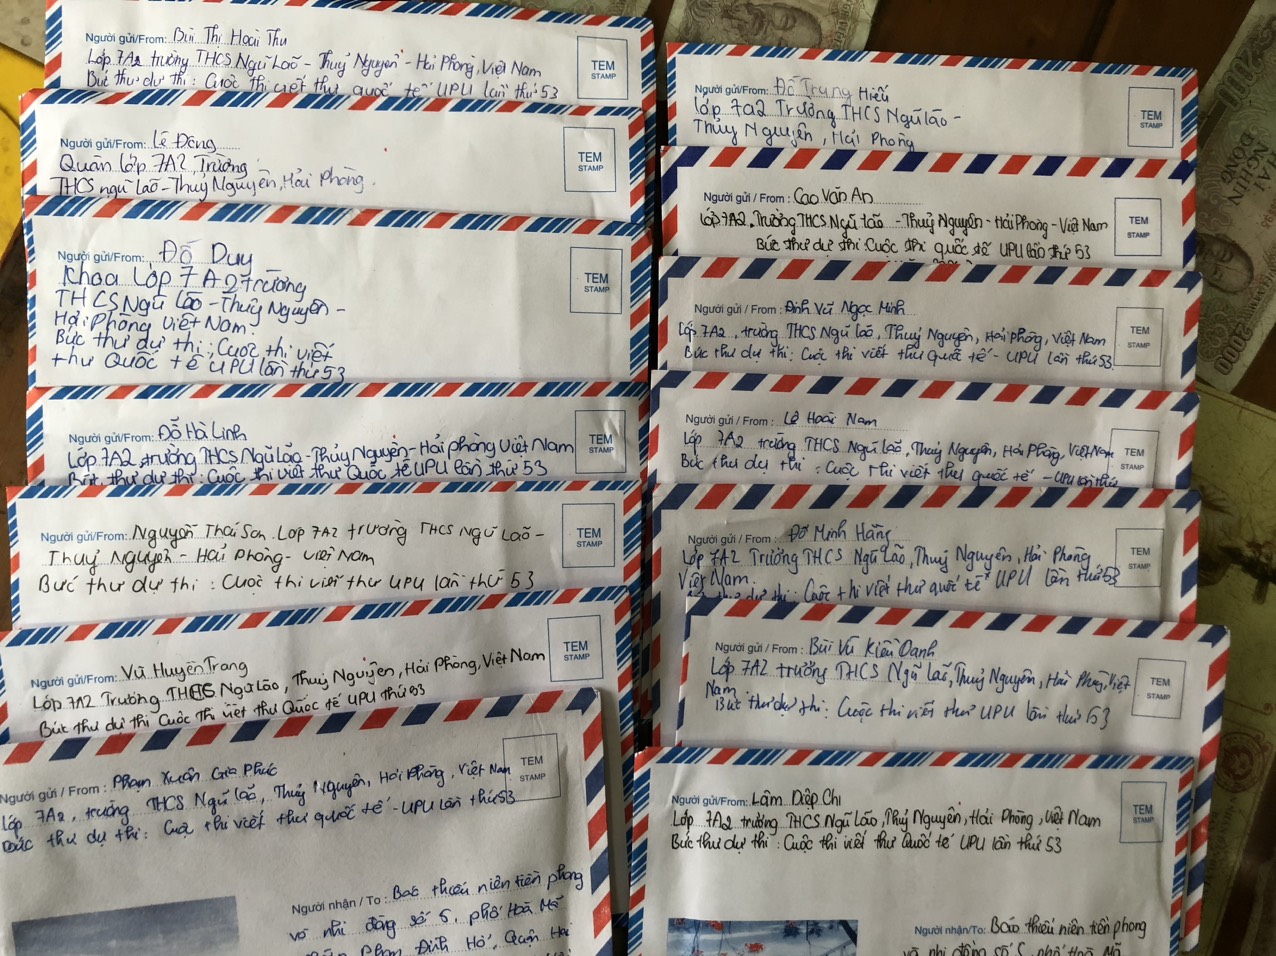 Người gửi/From: Bùi Thị Hoài Thu
Lớp 7A2 trường THCS Ngũ Lão - Thuỷ Nguyên - Hải Phòng, Việt Nam
Bức thư dự thi: Cuộc thi viết thư quốc tế UPU lần thứ 53
TEM
STAMP
Người gửi/From: Lê Đăng
Quân lớp 7A2, Trường
THCS ngũ Lão - Thuỷ Nguyên, Hải Phòng.
TEM
STAMP
Người gửi/From: Đỗ Duy
Khoa Lớp 7A2 trường
THCS Ngũ Lão - Thuỷ Nguyên -
Hải Phòng Việt Nam
Bức thư dự thi: Cuộc thi viết
thư Quốc tế UPU lần thứ 53
TEM
STAMP
Người gửi/From: Đỗ Hà Linh
Lớp 7A2 trường THCS Ngũ Lão - Thủy Nguyên - Hải phòng Việt Nam
Bức thư dự thi: Cuộc thi viết thư Quốc tế UPU lần thứ 53
TEM
STAMP
Người gửi/From: Nguyễn Thái Sơn Lớp 7A2 trường THCS Ngũ Lão -
Thuỷ Nguyên - Hải Phòng - Việt Nam
Bức thư dự thi: Cuộc thi viết thư UPU lần thứ 53
TEM
STAMP
Người gửi/From: Vũ Huyền Trang
Lớp 7A2 Trường THCS Ngũ Lão, Thuỷ Nguyên, Hải Phòng, Việt Nam
Bức thư dự thi Cuộc Thi viết thư Quốc tế UPU thứ 53
TEM
STAMP
Người gửi / From: Phạm Xuân Gia Phúc
Lớp 7A2, trường THCS Ngũ Lão, Thuỷ Nguyên, Hải Phòng, Việt Nam
Bức thư dự thi: Cuộc thi viết thư quốc tế - UPU lần thứ 53
TEM
STAMP
Người nhận / To: Báo thiếu niên tiền phong
và nhi đồng số 5, phố Hoà Mã
Phạm Đình Hổ, Quận Hai
Người gửi/From: Đỗ Trung Hiếu
Lớp 7a2 Trường THCS Ngũ Lão -
Thủy Nguyên, Hải Phòng
TEM
STAMP
Người gửi / From: Cao Văn An
Lớp 7A2. Trường THCS Ngũ Lão - Thuỷ Nguyên - Hải Phòng - Việt Nam
Bức thư dự thi Cuộc thi quốc tế UPU lần thứ 53
TEM
STAMP
Người gửi / From: Đinh Vũ Ngọc Minh
Lớp 7A2, trường THCS Ngũ Lão, Thuỷ Nguyên, Hải Phòng, Việt Nam
Bức thư dự thi: Cuộc thi viết thư quốc tế - UPU lần thứ 53
TEM
STAMP
Người gửi / From: Lê Hoài Nam
Lớp 7A2 trường THCS Ngũ Lão, Thuỷ Nguyên, Hải Phòng, Việt Nam
Bức thư dự thi: Cuộc thi viết thư quốc tế - UPU lần thứ
TEM
STAMP
Người gửi / From: Đỗ Minh Hằng
Lớp 7A2 Trường THCS Ngũ Lão, Thuỷ Nguyên, Hải Phòng
Việt Nam.
Cuộc thi viết thư quốc tế UPU lần thứ 53
TEM
STAMP
Người gửi / From: Bùi Vũ Kiều Oanh
Lớp 7A2 trường THCS Ngũ Lão, Thuỷ Nguyên, Hải Phòng, Việt
Nam
Bức thư dự thi: Cuộc thi viết thư UPU lần thứ 53
TEM
STAMP
Người gửi/From: Lâm Diệp Chi
Lớp 7A2 trường THCS Ngũ Lão, Thuỷ Nguyên, Hải Phòng, Việt Nam
Bức thư dự thi: Cuộc thi viết thư Quốc tế UPU lần thứ 53
TEM
STAMP
Người nhận/To: Báo thiếu niên tiền phong
và nhi đồng số 5, phố Hoà Mã
HAI NGHÌN ĐỒNG
2000